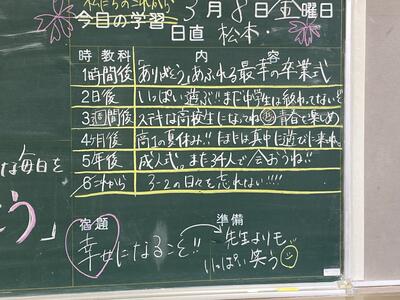 私たちのこれから
今日の学習 3月8日(金)曜日
日直 松本・
時 教科 内 容
1時間後 「ありがとう。あふれる最幸の卒業式
2日後 いっぱい遊ぶ!!まだ中学生は終わってないぞ
3週間後 ステキな高校生になってね 青春を楽しめ
4ヶ月後 高1の夏休み!!たまには真中に遊びに来れ。
5年後 成人式。また34人で会おうね!!
これから 3-2の日々を忘れない!!!!
な毎日を
う」
宿題 準備
幸せになること!! 先生よりも
いっぱい笑う